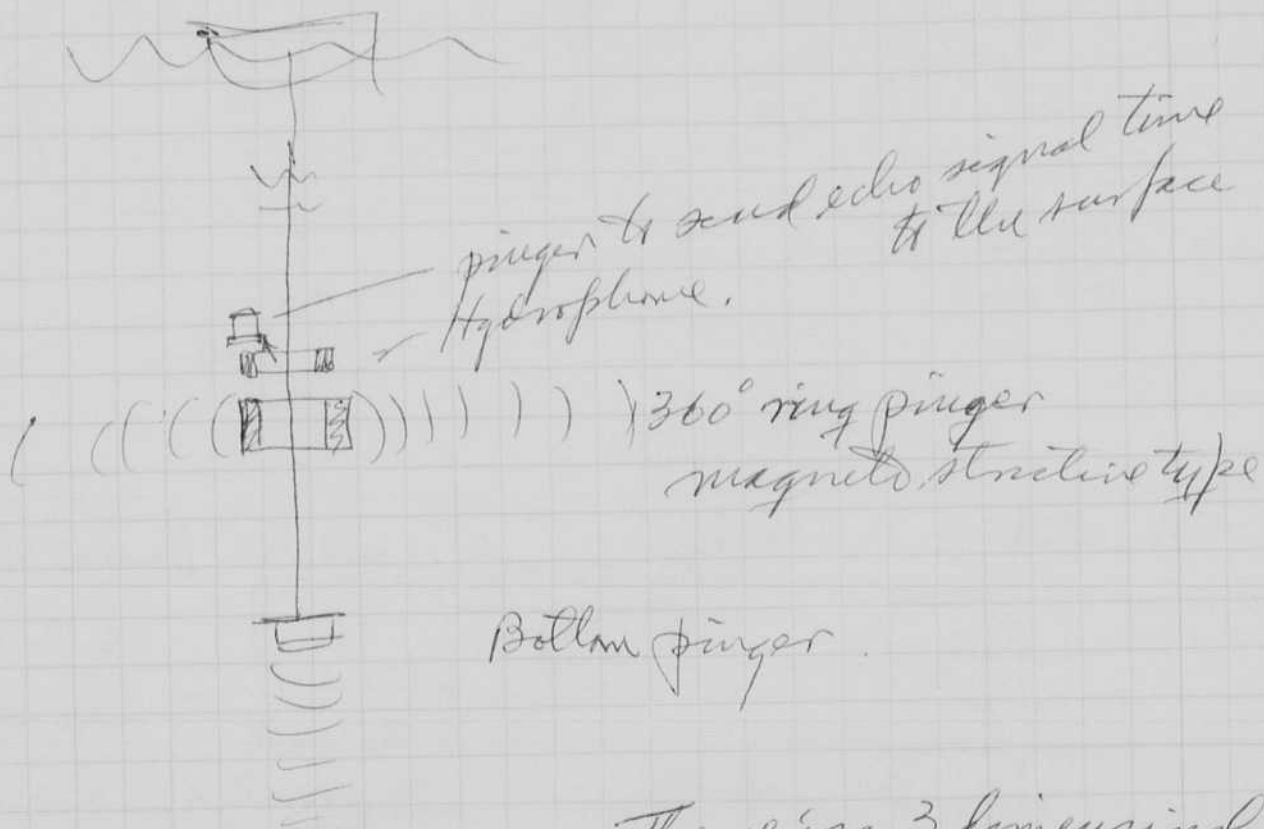 pinger to send echo signal time
to the surface
Hydrophone.
360° ring pinger
magneto strictive type
Bottom pinger.
3 dimensional